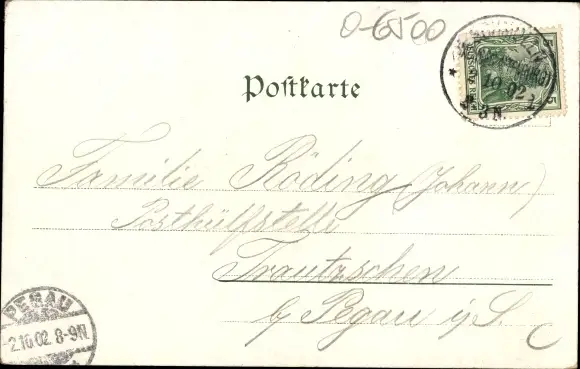 0-6500
5
10 02
3 N.
Postkarte
Familie Röding (Johann)
Posthülfstelle
Trautzschen
b/ Pegau i/S.
PEGAU
2.10.02. 8-9N.